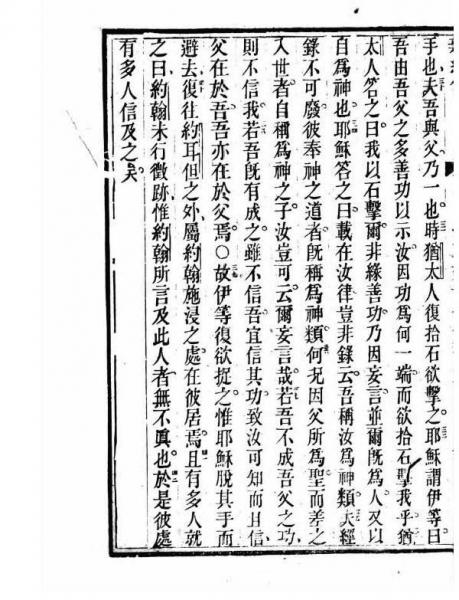 手也夫吾與父乃一也時猶太人復拾石欲擊之耶穌謂伊等曰
吾由吾父之多善功以示汝因功為何一端而欲拾石擊我乎猶
太人答之曰我以石擊爾非緣善功乃因妄言並爾既為人又以
自為神也耶穌答之曰載在汝律豈非錄云吾稱汝為神類夫經
錄不可廢彼奉神之道者既稱為神類何況因父所為聖而差之
入世者自稱為神之子汝豈可云爾妄言哉若吾不成吾父之功
則不信我若吾既有成之雖不信吾宜信其功致汝可知而且信
父在於吾吾亦在於父焉○故伊等復欲捉之惟耶穌脫其手而
避去復往約耳但之外屬約翰施浸之處在彼居焉且有多人就
之曰約翰未行徵跡惟約翰所言及此人者無不真也於是彼處
有多人信及之矣